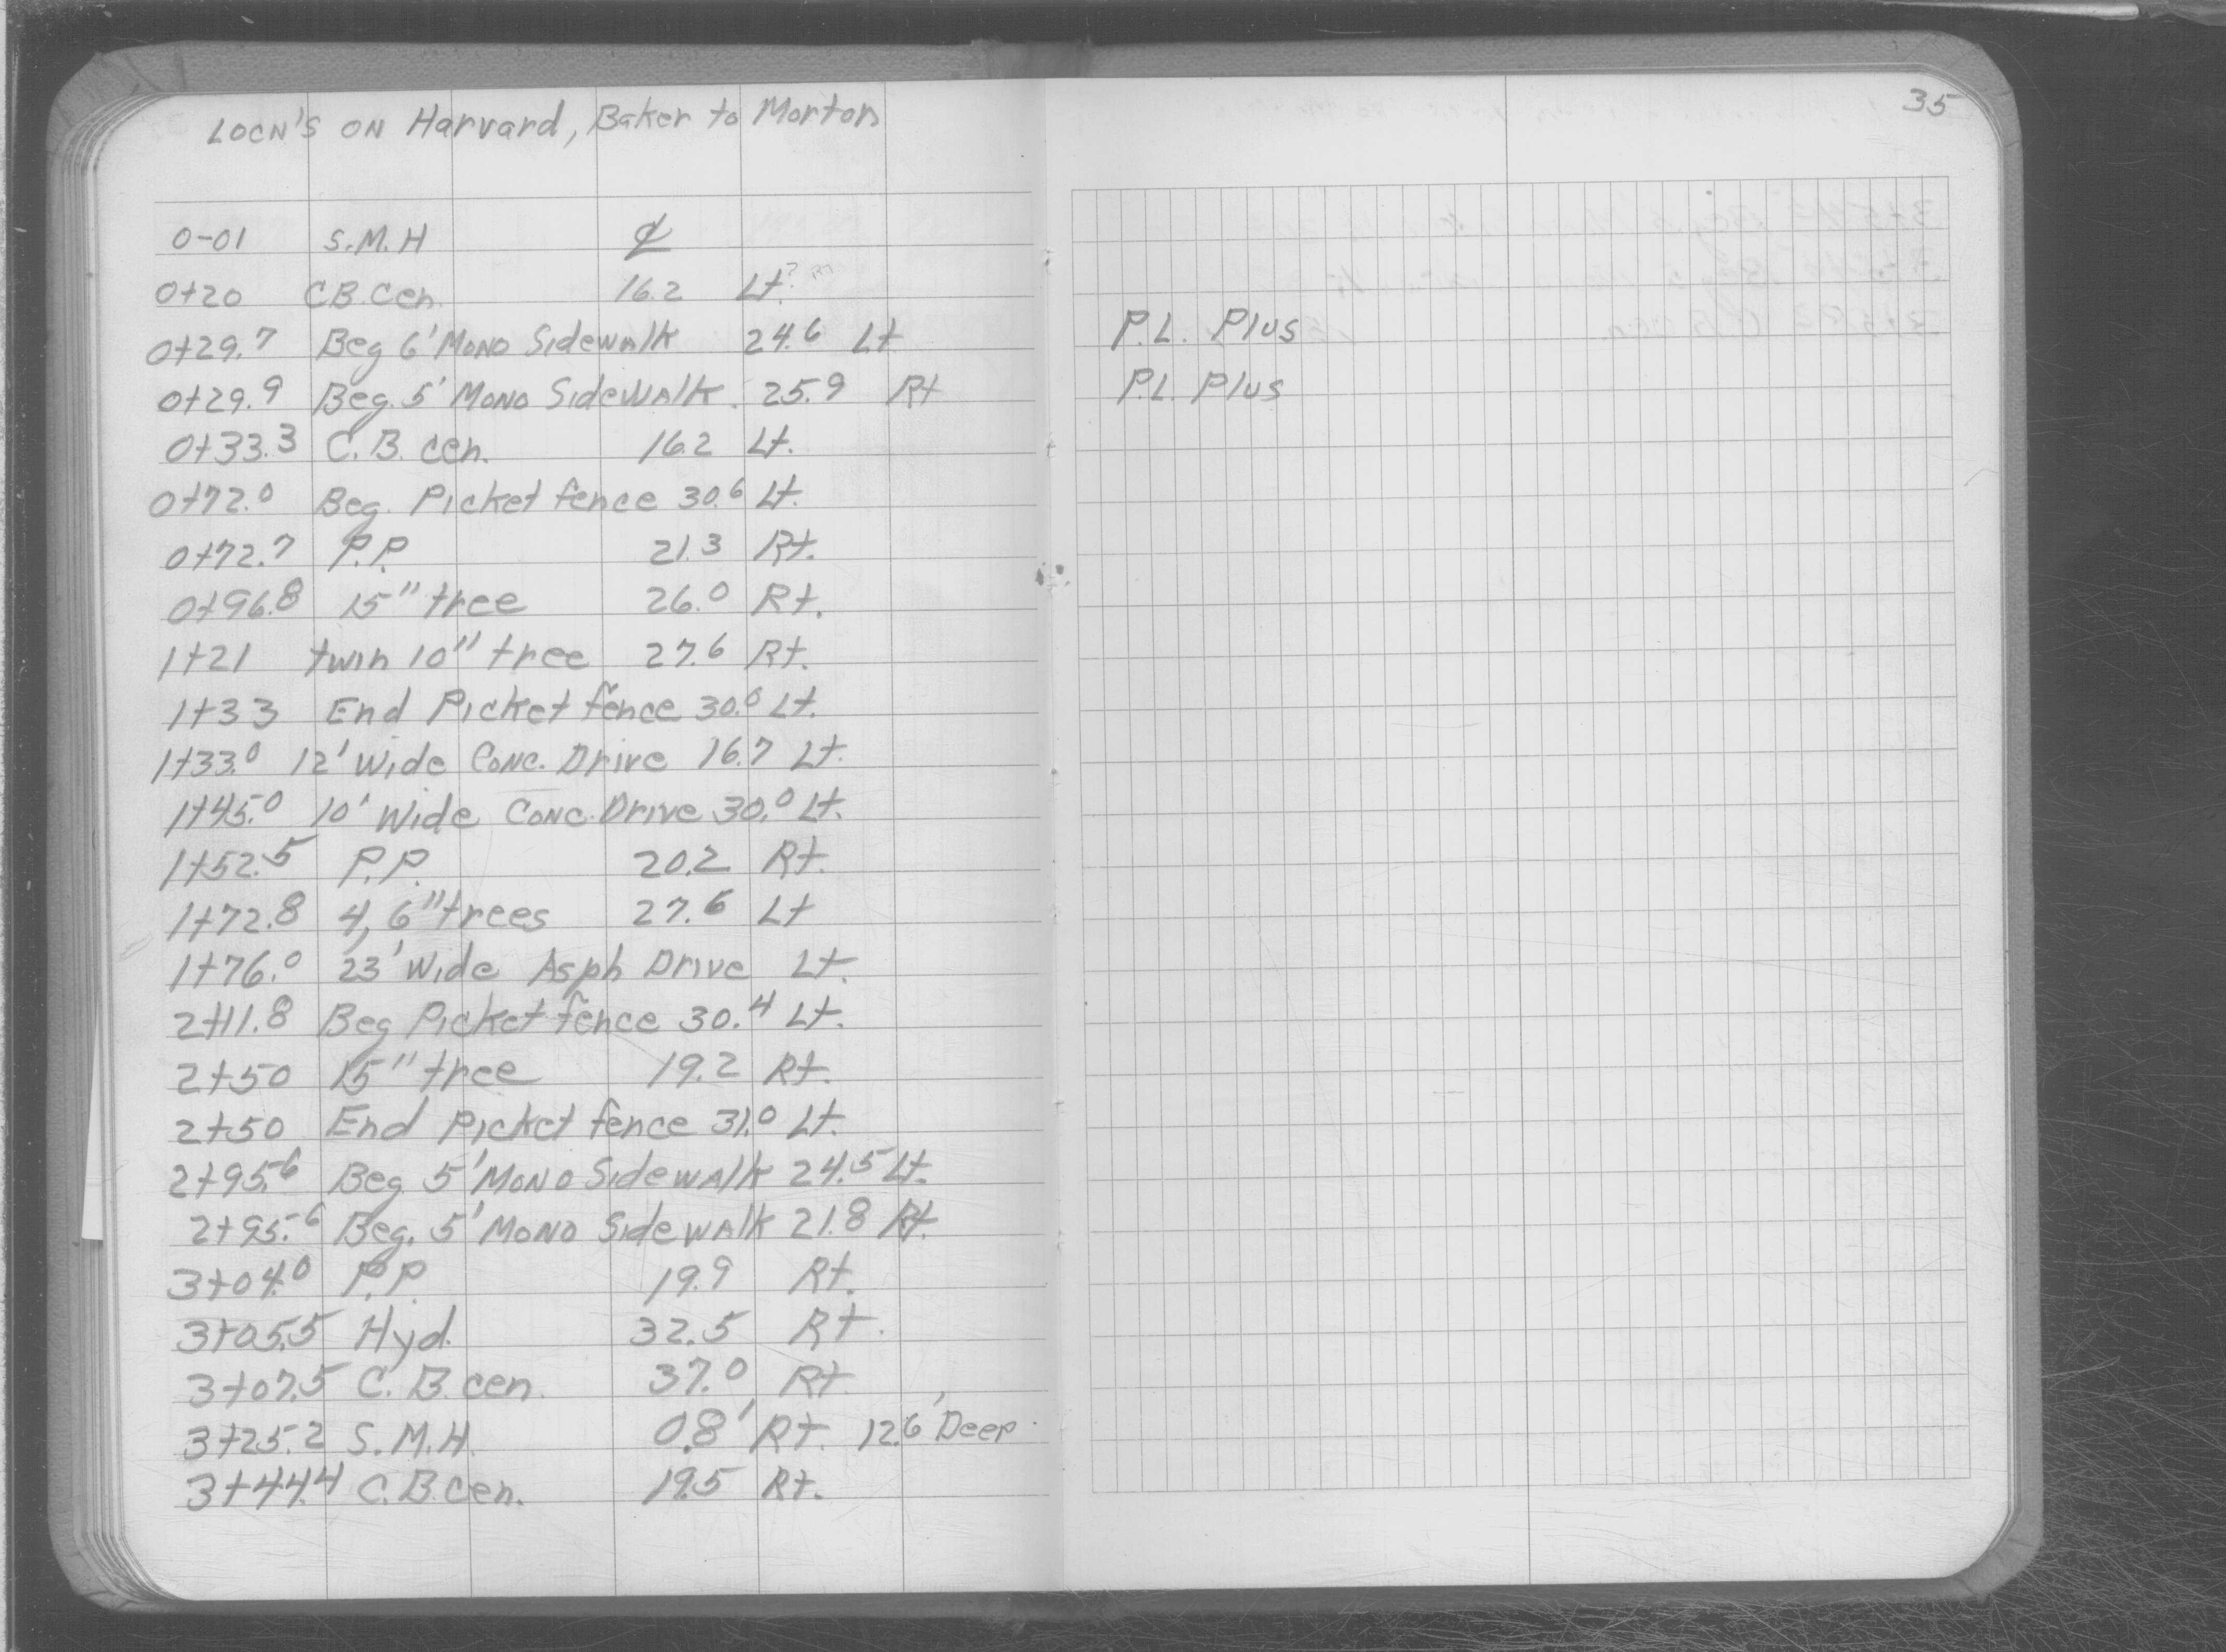 LOCN'S ON Harvard, Baker to Morton
35
0-01 S.M.H ℄
0+20 C.B. cen. 16.2 Lt.?
0+29.7 Beg 6' MONO Sidewalk 24.6 Lt P.L. Plus
0+29.9 Beg. 5' MONO Sidewalk. 25.9 Rt P.L. Plus
0+33.3 C.B. cen. 16.2 Lt.
0+72.0 Beg. Picket fence 30.6 Lt.
0+72.7 P.P. 21.3 Rt.
0+96.8 15" tree 26.0 Rt.
1+21 twin 10" tree 27.6 Rt.
1+33 End Picket fence 30.0 Lt.
1+33.0 12' Wide Conc. Drive 16.7 Lt.
1+45.0 10' Wide Conc. Drive 30.0 Lt.
1+52.5 P.P. 20.2 Rt.
1+72.8 4, 6" trees 27.6 Lt
1+76.0 23' Wide Asph Drive Lt.
2+11.8 Beg Picket fence 30.4 Lt.
2+50 15" tree 19.2 Rt.
2+50 End Picket fence 31.0 Lt.
2+95.6 Beg 5' MONO Sidewalk 24.5 Lt.
2+95.6 Beg. 5' MONO Sidewalk 21.8 Rt.
3+04.0 P.P. 19.9 Rt.
3+05.5 Hyd. 32.5 Rt.
3+07.5 C.B. cen. 37.0 Rt
3+25.2 S.M.H. 0.8' Rt. 12.6' Deep
3+44.4 C.B. cen. 19.5 Rt.